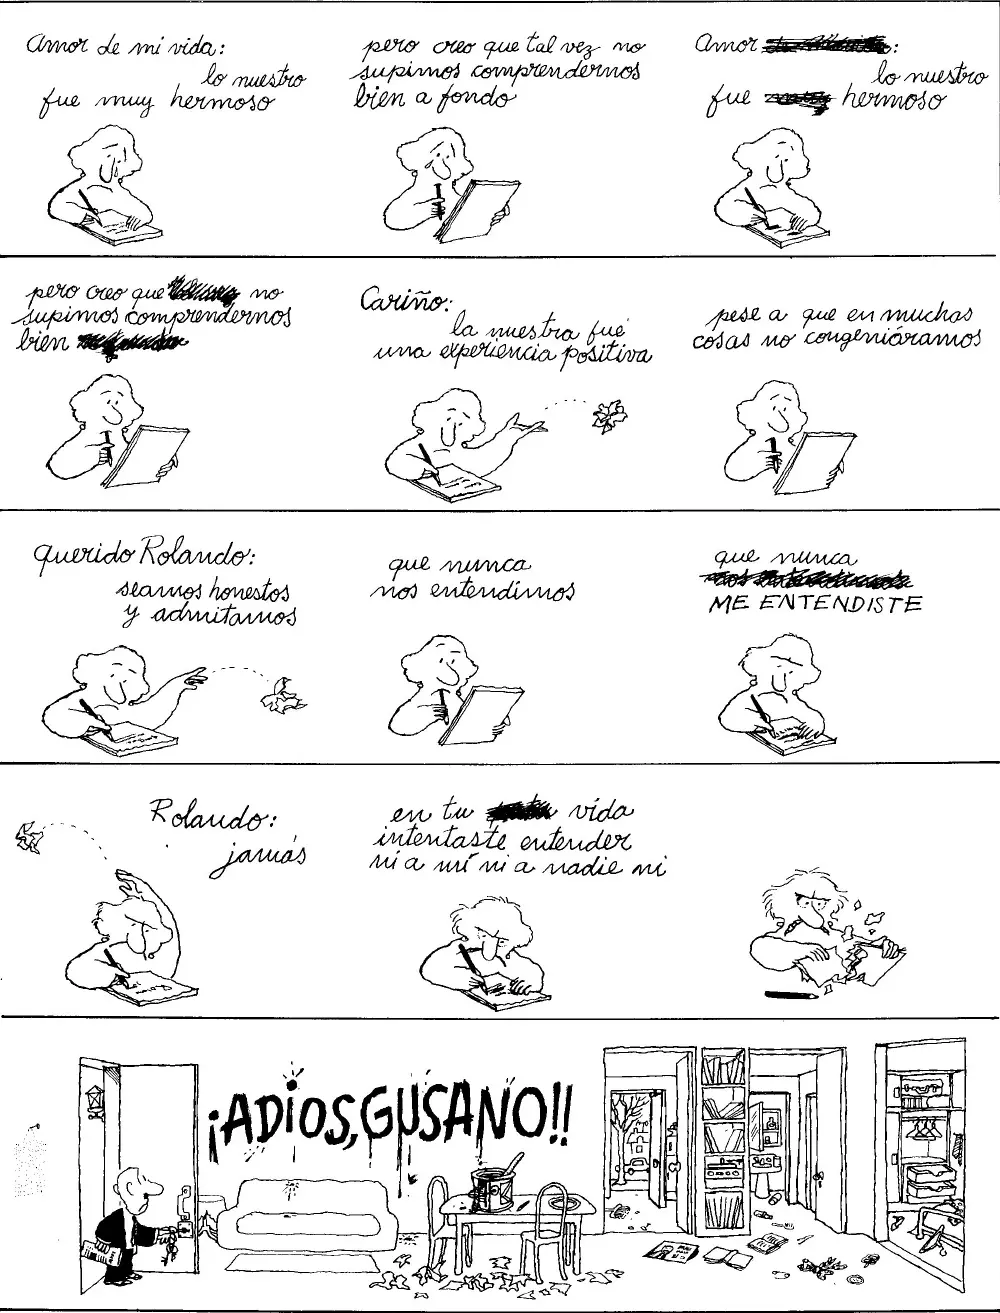 Amor de mi vida:
lo nuestro
fue muy hermoso
pero creo que tal vez no
supimos comprendernos
bien a fondo
Amor :
lo nuestro
fue hermoso
pero creo que no
supimos comprendernos
bien
Cariño:
la nuestra fué
una experiencia positiva
pese a que en muchas
cosas no congeniáramos
querido Rolando:
seamos honestos
y admitamos
que nunca
nos entendimos
que nunca
ME ENTENDISTE
Rolando:
jamás
en tu vida
intentaste entender
ni a mí ni a nadie ni
¡ADIOS, GUSANO!!